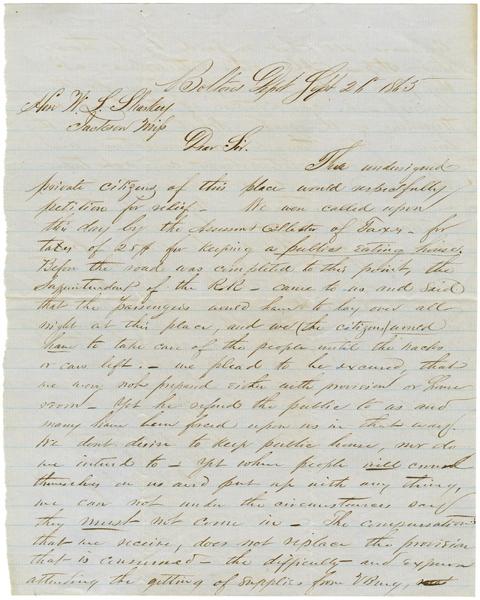 Boltons Depot Sept 26 1865
Hon W. L. Sharkey
Jackson Miss
Dear Sir.
The undersigned
private citizens of this place would respectfully
petition for relief - We were called upon
this day by the Assessor & Collector of Taxes - for
taxes of 25 for keeping a public eating house,
Before the road was completed to this point, the
Superintendent of the R.R. - came to us and said
that the passengers would have to lay over all
night at this place, and we (the citizens) would
have to take care of the people until the hacks
or cars left. - we plead to be excused, that
we were not prepared either with provision or house
room - yet he refered the public to us and
many have been forced upon us in that way.
We dont desire to keep public house, nor do
we intend to - yet when people will crowd
themselves on us and put up with any thing,
we can not under the circumstances say
they must not come in - The compensation
that we receive, does not replace the provision
that is consumed - the difficulty and expense
attending the getting of supplies from VBurg,